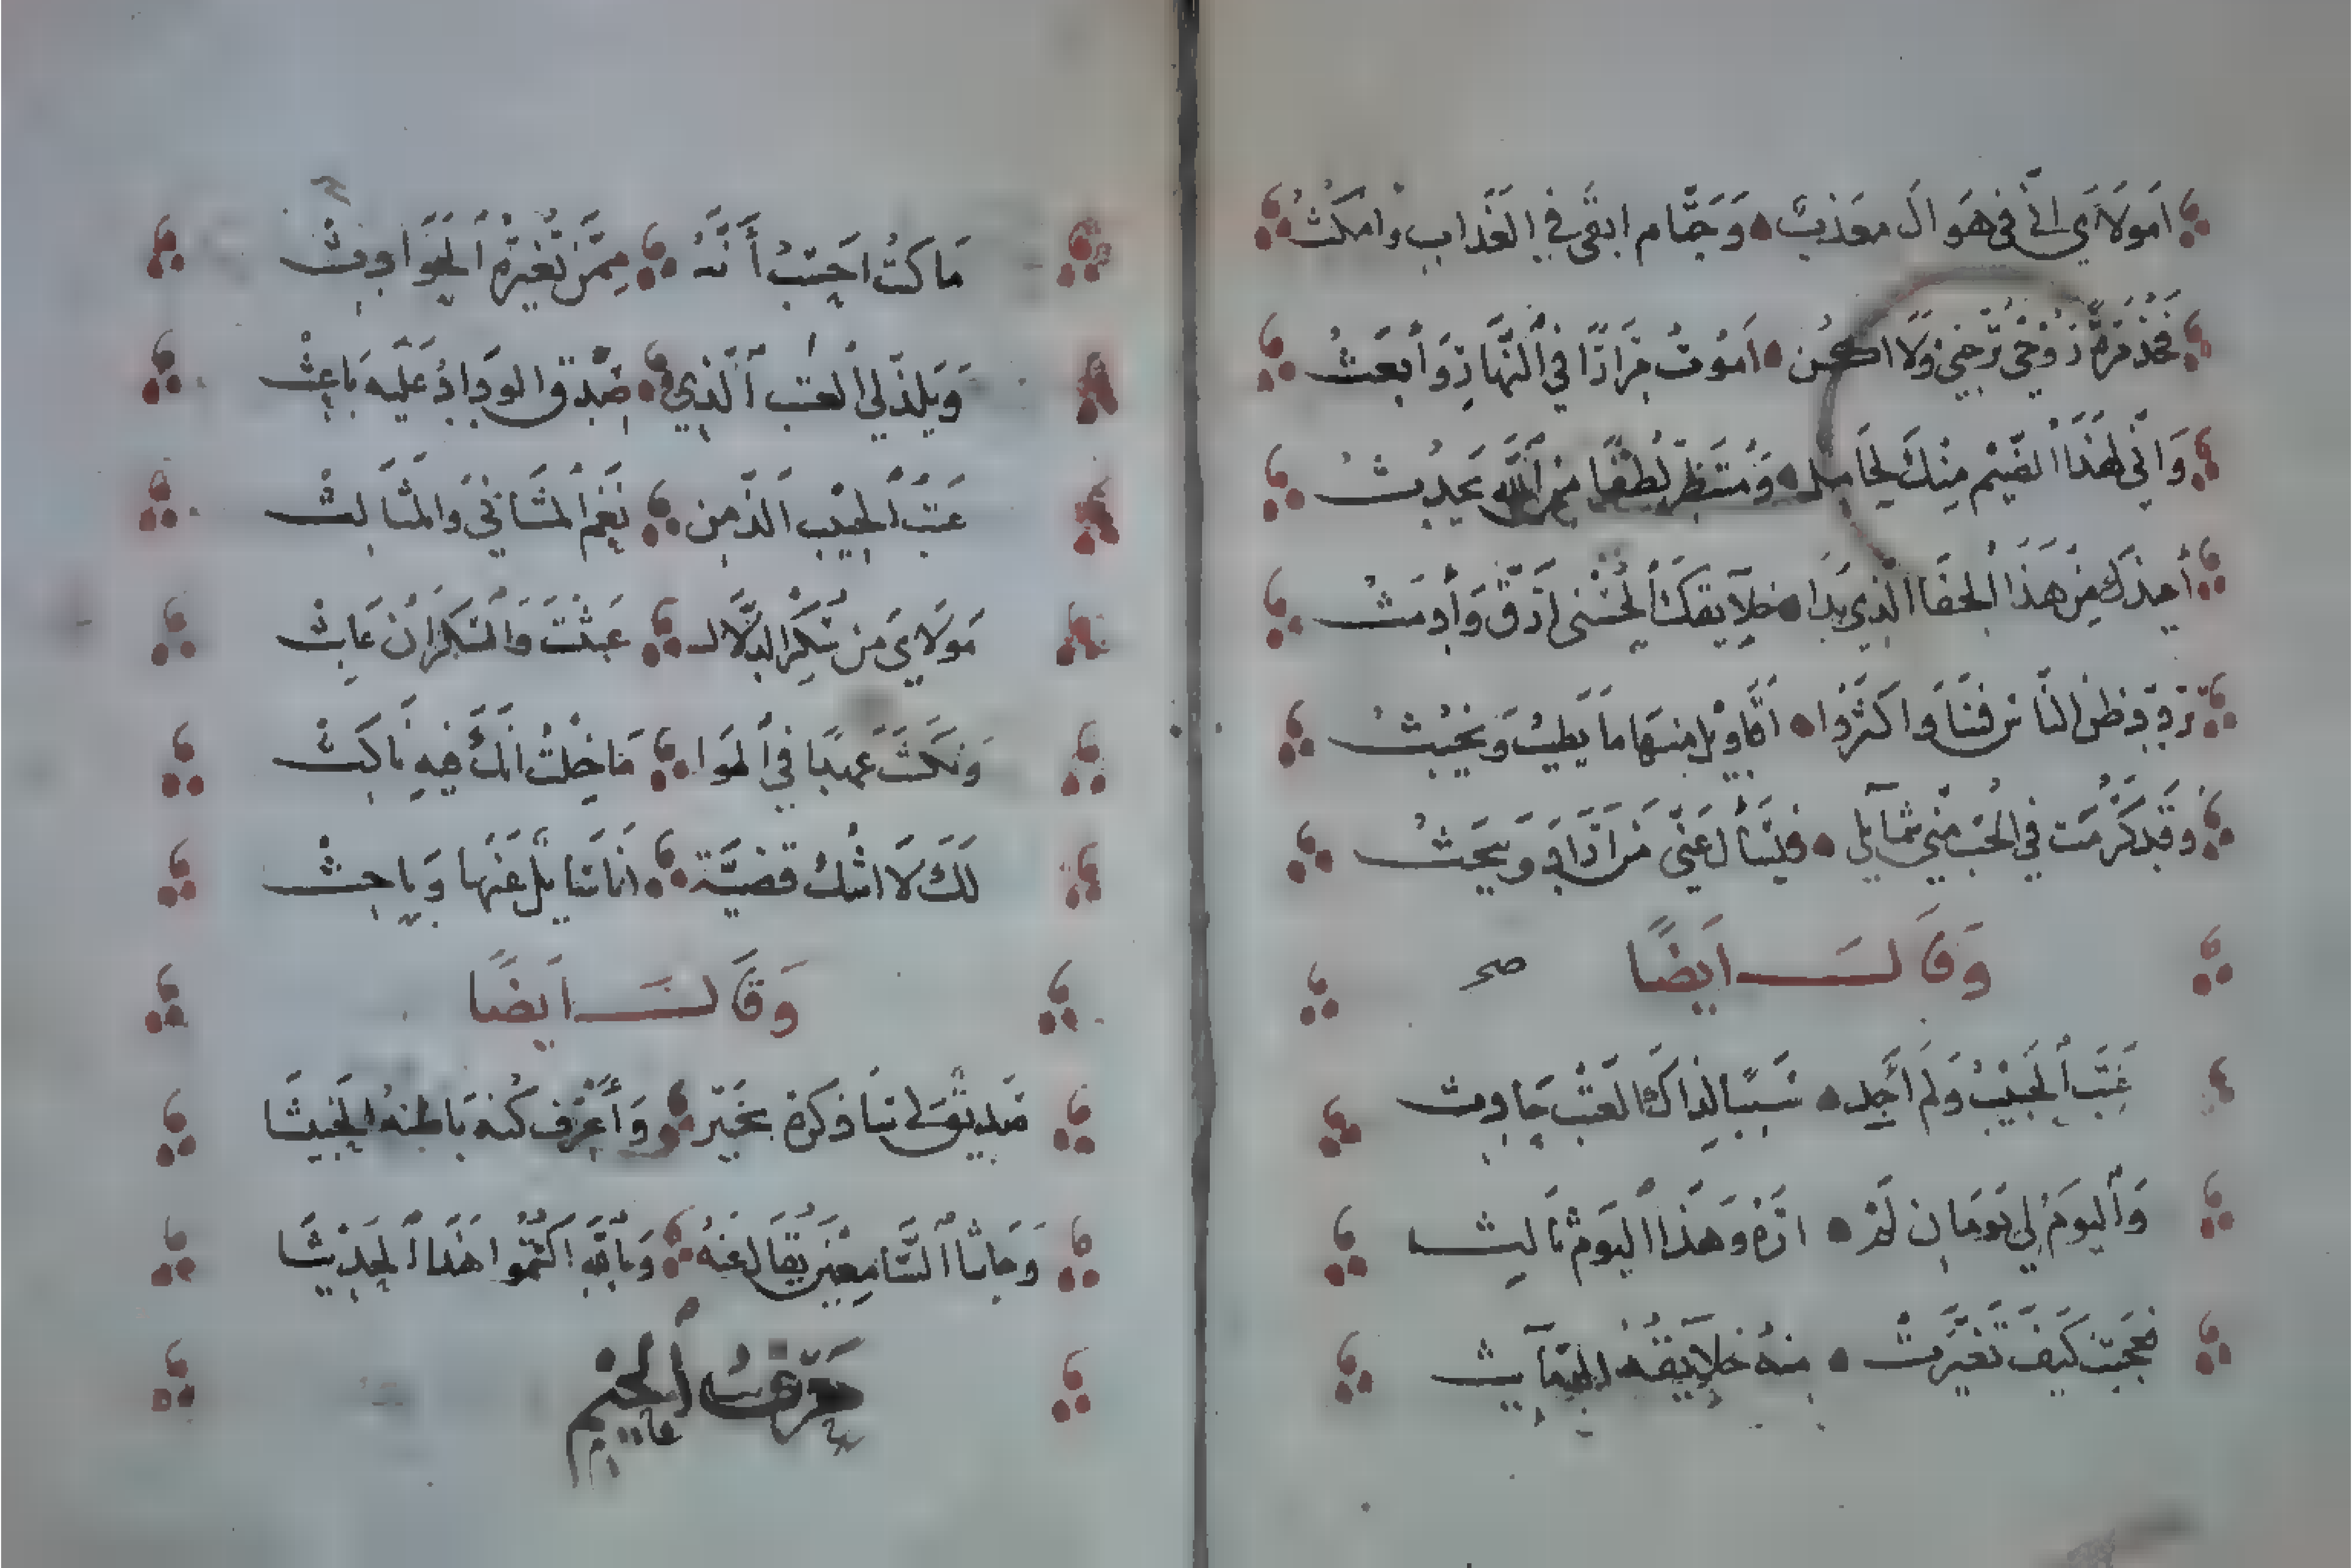 اَمَولَاىَ اِنّي في هَوَاكَ معَذبٌ وَحَتَّام ابقَى في العَذَاب وامكثُ
فَخُذ مَرّةً رُوحي تُرِحني وَلَا اكن اَمُوتُ مِرَارًا في اَلنَّهَارِ وَأُبعَثُ
وَانّي لهَذَا الضَيْمِ مِنْكَ لحَامِلٌ وَمُنتَظِرٌ لُطفًا مِنَ اَللَّهِ يَحدُثُ
أُعِيذكَ مِن هَذَا اَلجفَا الَّذِي بَدَا خلَآيقكَ اَلحُسْنى اَرَقُّ وَأَدمَثُ
تَرَدّدَ ظنُّ النَّاسِ فينَا وَاكثَرُوا اقَاوِيلَ مِنهَا مَا يَطِيبُ وَيَخبُثُ
وَقَد كَرُمَت في الحُبِّ مِنّي شمَآيلي فَيَسْأَلُ عَنّي مَن اَرَادَ وَيَبحَثُ
وَقَالَ اَيضًا صح
عَتَبَ اَلحَبيْبُ وَلَم اَجِد سَبَبًا لِذَاكَ العَتْبِ حَادِث
وَاَليَومَ لِي يَومَانِ لَم اَرَهُ وَهَذَا اَليَومُ ثَالِث
فعَجِبتُ كَيفَ تَغَيَّرتْ مِنهُ خَلآيقُهُ الدّمَآيِث
مَا كُنتُ اَحسِبُ أَنَّهُ مِمَّن تُغَيّرُهُ اَلحَوَادِثْ
وَيَلذّ لي العتب اَلَّذِي صِدق الودَادِ عَلَيه بَاعِثْ
عَتبُ اَلحَبِيْب اَلذّ مِن نَغَمِ اَلمثَاني وَالمثَالثْ
مَولَايَ مِن سُكْرِ الدّلَال عَبَثْتَ وَاَلسَكرَانُ عَابِثْ
وَنَكثَ عَهدًا في اَلهَوَا مَا خِلتُ اَنّكَ فيهِ نَاكثْ
لَكَ لَا اشُكُّ قَضيَّة انَا سَايلٌ عَنهَا وَبَاحِثْ
وَقَالَ اَيضًا
صَدِيْقٌ لي سَاذكرهُ بخَيْر وَأَعْرف كُنهَ بَاطِنهُ اَلخَبِيثَا
وَحَاشَا اَلسَّامِعِيْنَ يُقَالُ عَنهُ وَبِاللَّهِ اكتُمُوا هَذَا اَلحَدِيْثَا
حَرفُ اَلجِيْم